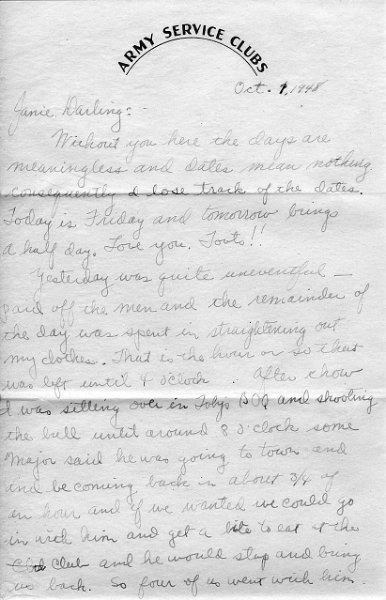 ARMY SERVICE CLUBS
Oct. 1, 1948
Janie Darling: -
Without you here the days are
meaningless and dates mean nothing
consequently I lose track of the dates.
Today is Friday and tomorrow brings
a half day. Love you. Toots!!
Yesterday was quite uneventful –
paid off the men and the remainder of
the day was spent in straightening out
my clothes. That is the hour or so that
was left until 4 o'clock. After chow
I was sitting over in Toby's BOQ and shooting
the bull until around 8 o'clock some
Major said he was going to town and
and be coming back in about 3/4 of
an hour and if we wanted we could go
in with him and get a bite to eat at the
club and he would stop and bring
us back. So four of us went with him.